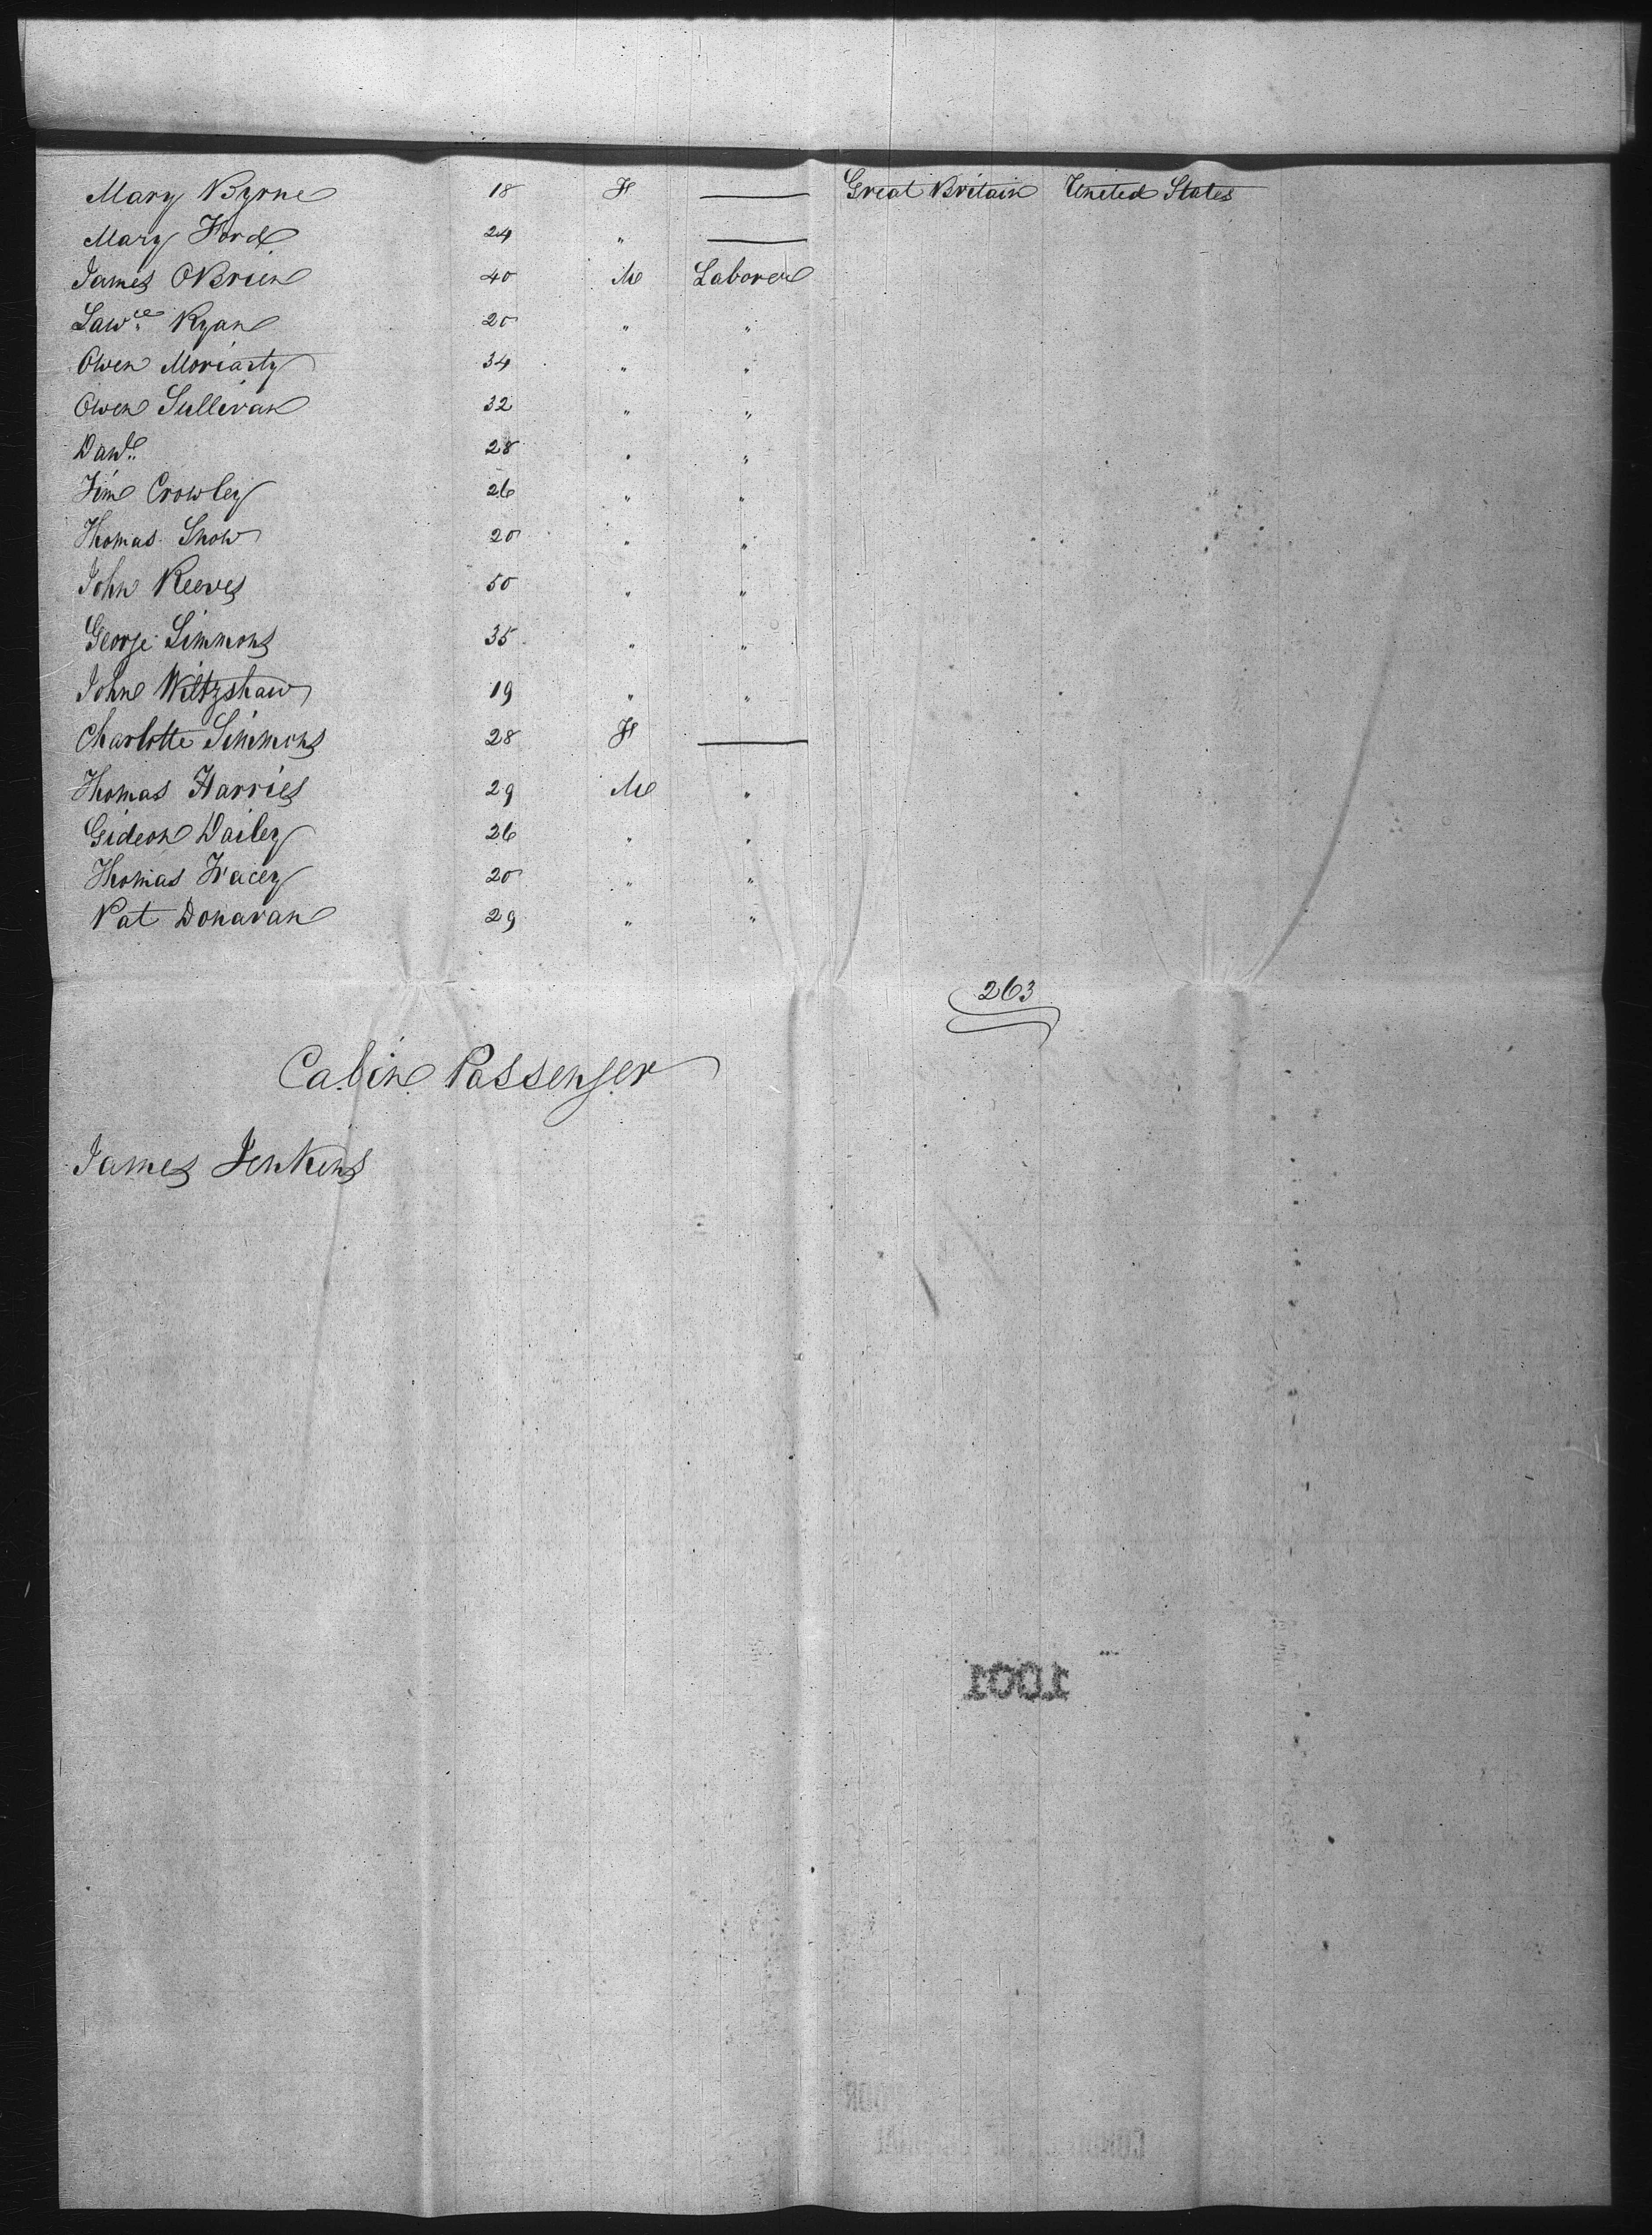 Mary Byrne 18 F —— Great Britain United States
Mary Ford 24 " ——
James OBrien 40 M Laborer
Lawce Ryan 20 " "
Owen Moriarty 34 " "
Owen Sullivan 32 " "
Danl 28 " "
Tim Crowley 26 " "
Thomas Snow 20 " "
John Reeves 50 " "
George Simmons 35 " "
John Wiltzshaw 19 " "
Charlotte Simmons 28 F ——
Thomas Harries 29 M "
Gideon Dailey 26 " "
Thomas Tracey 20 " "
Pat Donavan 29 " "
263
Cabin Passenger
James Jenkins
1001